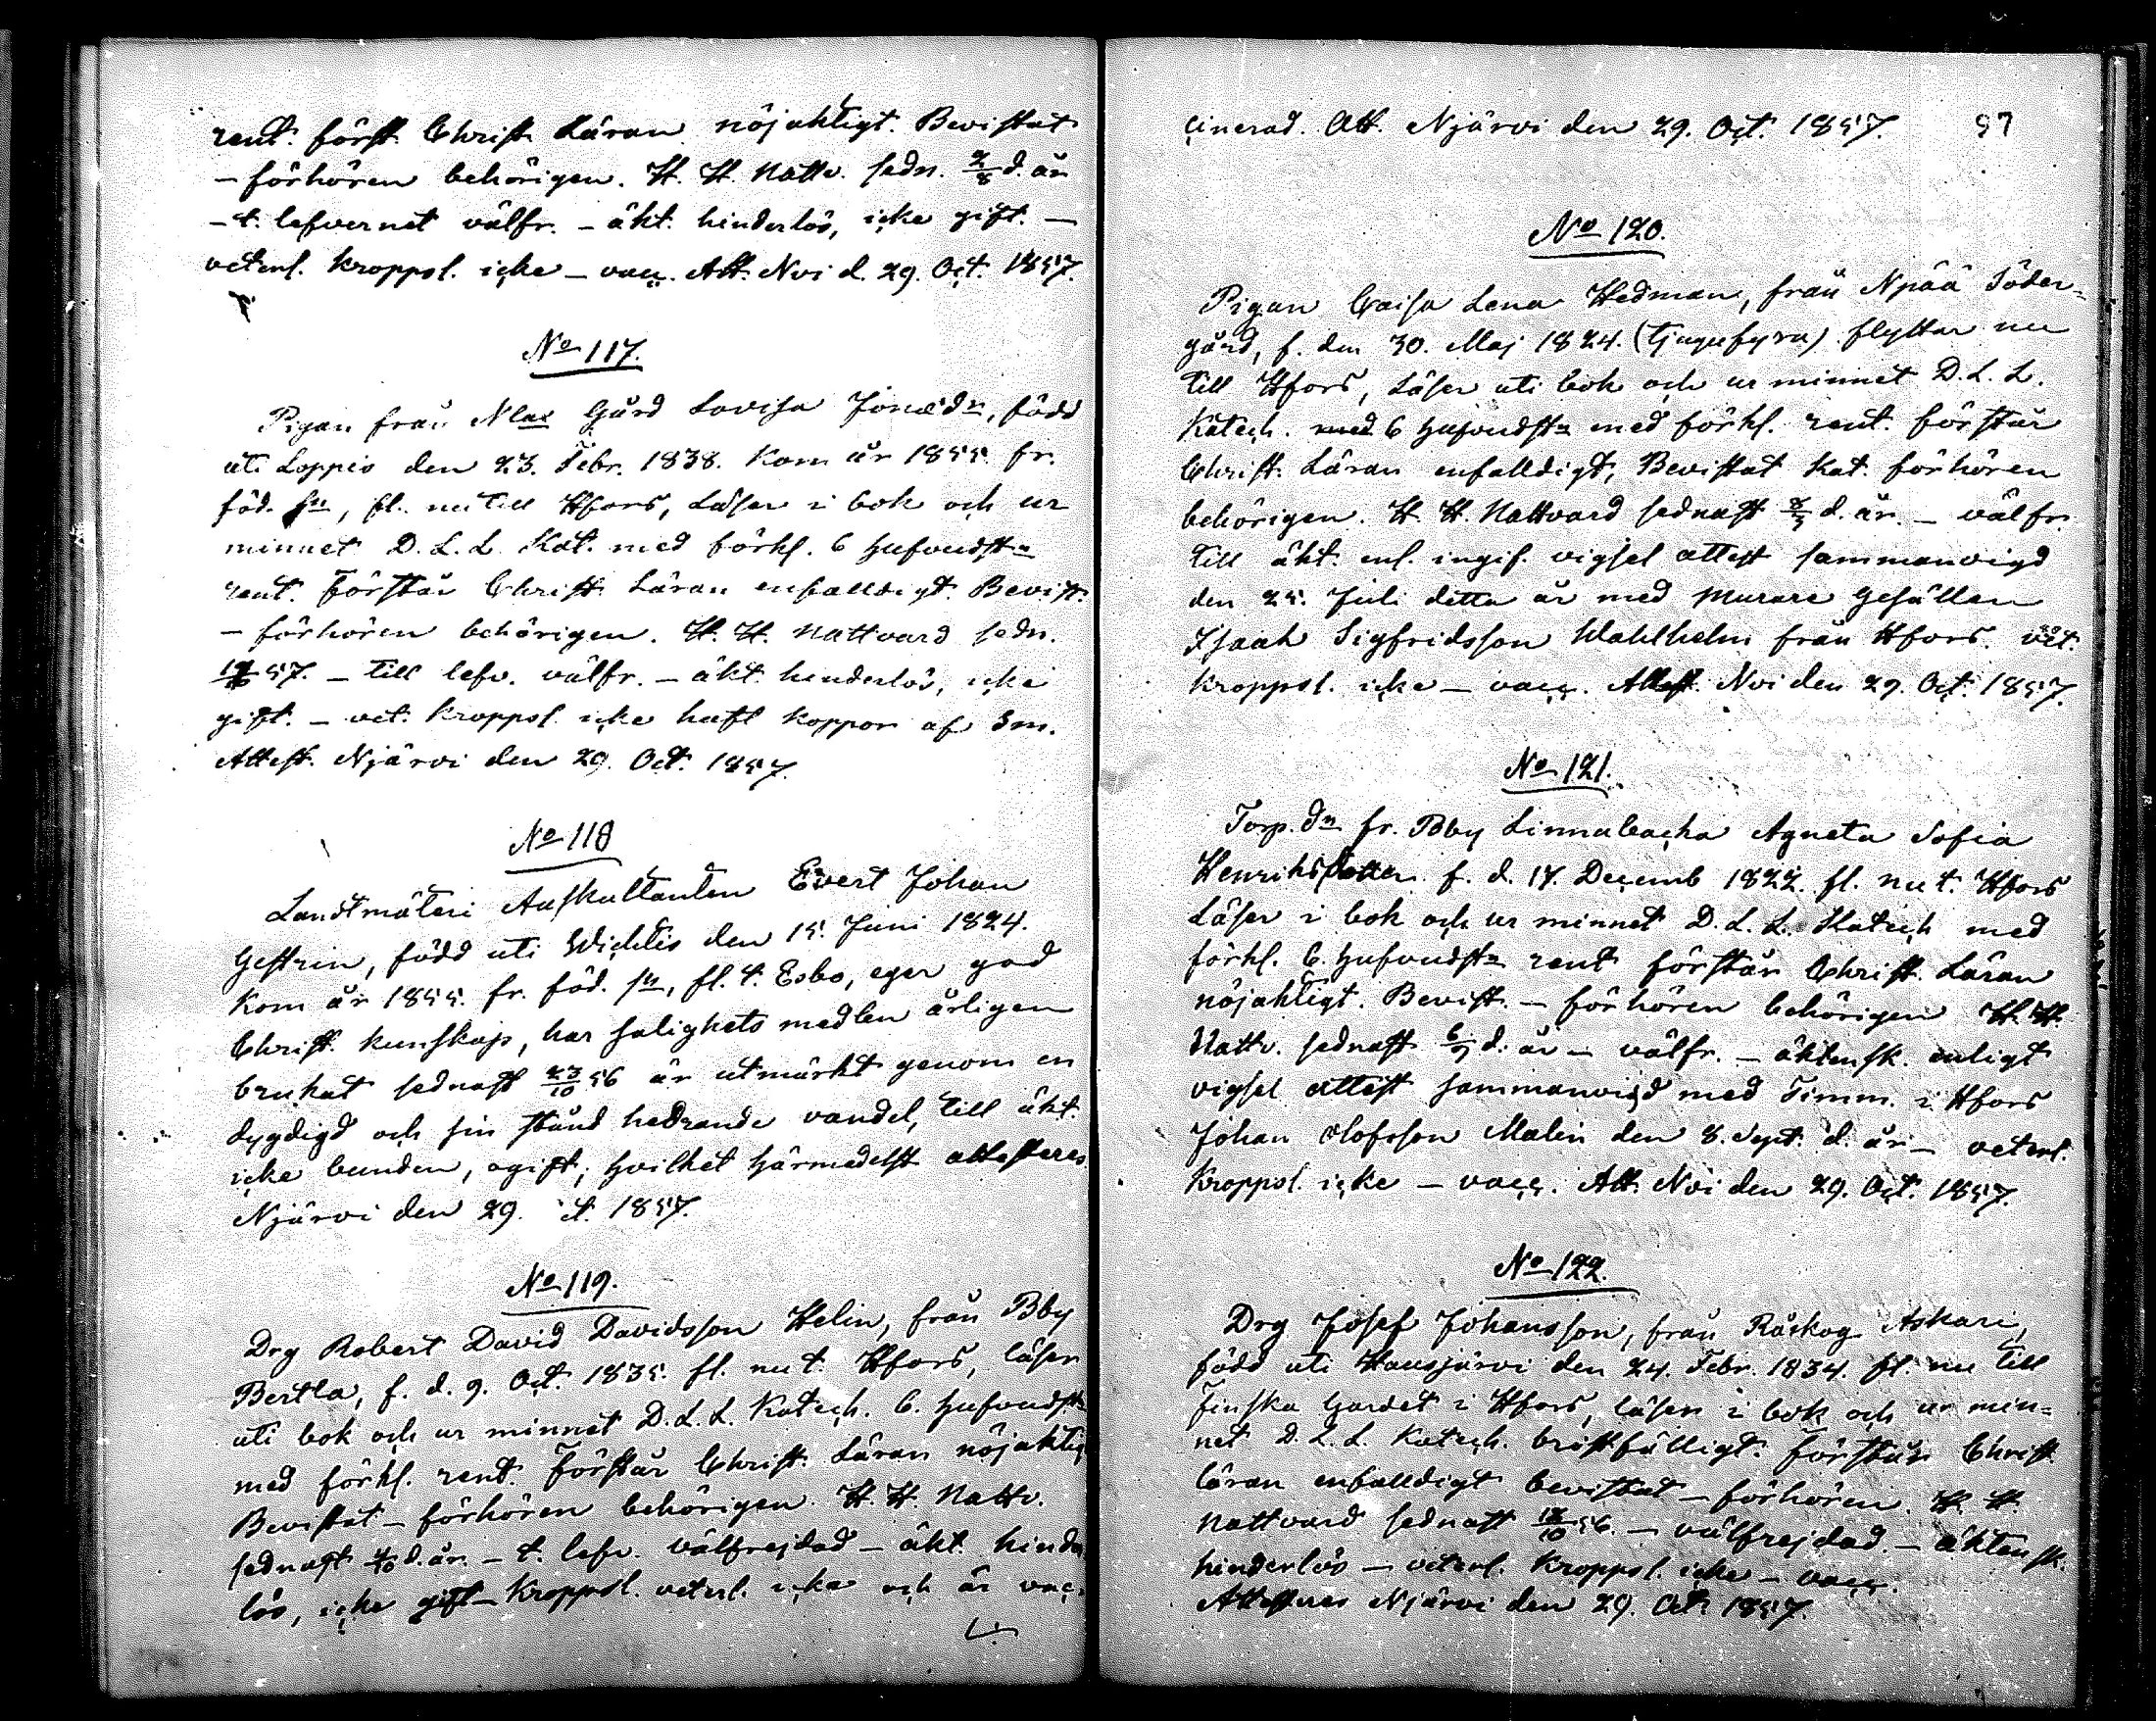 rent. förstr Christ. Läran nöjaktigt. Bevistat
– förhören behörigen. H. H. Nattv. sedn. 2/8 d. år
– t. lefvernet välfr. – äkt. hinderlös, icke gift. –
veterl. kroppsl. icke – vacc. Att. Nvi d. 29. Oct. 1857.
No 117.
Pigan från Nlax Gård Lovisa Jonædr, född
uti Loppis den 23. Febr. 1838. Kom år 1855. fr.
föd. sn, fl. nu till Hfors, Läser i bok och ur
minnet D. L. L. Kat. med förkl. 6 hufvudstn
rent. Förstår Christ. Läran enfalldigt. Bevist.
– förhören behörigen. H. H. Nattvard sedn.
57. – till lefv. välfr. – äkt. hinderlös, icke
gift. – vet. kroppsl. icke haft koppor af Sm.
Attest. Njärvi den 29. Oct. 1857.
No 118
Landtmäteri Auskultanten Evert Johan
Gestrin, född uti Wichtis den 15. Juni 1824.
Kom år 1855. fr. föd. sn, fl. t. Esbo, eger god
Christ. kunskap, har salighets medlen årligen
brukat sednast 23/10 56 är utmärkt genom en
dygdig och sin stånd hedrande vandel, till äkt.
icke bunden, ogift; hvilket härmedelst attesteres
Njärvi den 29. ct. 1857.
No 119.
Drg Robert David Davidsson Helin, från Bby
Bertla, f. d. 9. Oct. 1835. fl. nu t. Hfors, läser
uti bok och ur minnet D. L. L. Katech. 6. hufvudstn
med förkl. rent. Förstår Christ. Läran nöjaktig
Bevistat – förhören behörigen. H. H. Nattv.
sednast 4/10 d. år. – t. lefv. välfrejdad – äkt. hinder
lös, icke gift – Kroppsl. veterl. icke och är vac-
cinerad. Att. Njärvi den 29. Oct. 1857. 97
No 120.
Pigan Caisa Lena Hedman, från Npää Söder=
gård, f. den 30. Maj 1824. (tjugufyra) flyttar nu
till Hfors, Läser uti bok och ur minnet D. L. L.
Katech. med 6 hufvudstn med förkl. rent. förstår
Christ. Läran enfalldigt, Bevistat Kat. förhören
behörigen. H. H. Nattvard sednast 8/3 d. år. – välfr.
till äkt. enl. ingif. vigsel attest sammanvigd
den 25. Juli detta år med Murare Gesällen
Isaak Sigfridsson Wahlholm från Hfors. vet.
kroppsl. icke – vacc. Attest. Nvi den 29. Oct. 1857.
No 121.
Torp. dn fr. Bby Linnabacka Agneta Sofia
Henriksdotter. f. d. 17. Decemb 1822. fl. nu t. Hfors
Läser i bok och ur minnet D. L. L. Katech med
förkl. 6. hufvudstn rent förstår Christ. Läran
nöjaktigt. Bevist. – förhören behörigen H. H.
Nattv. sednast 6/9 d. år – välfr. – äktensk. enligt
vigsel attest sammanvigd med Timm. i Hfors
Johan Olofsson Malin den 8. Sept. d. år – veterl.
kroppsl. icke – vacc. Att. Nvi den 29. Oct. 1857.
No 122.
Drg Josef Johansson, från Råskog Askari,
född uti Hausjärvi den 24. Febr. 1834. fl. nu till
Finska Gardet i Hfors, läser i bok och ur min=
net D. L. L. Katech. bristfälligt. Förstår Christ.
läran enfalldigt bevistat – förhören. H. H.
nattvard sednast 56. – välfrejdad. – äktensk.
hinderlös – veterl. kroppsl. icke – vacc.
Attesteres Njärvi den 29. Oct. 1857.